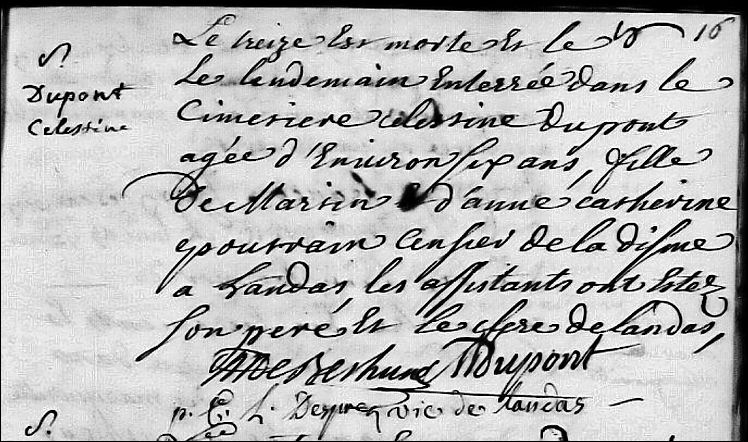 16
S.
Dupont
Celessine
Le treize Est morte Et le
Le lendemain Enterrée dans le
Cimetiere Celessine Dupont
agée d'Environ six ans, fille
De Martin Et d'anne catherine
pouvrain Censier de la disme
a Landas, les assistants ont Estez
son pere Et le clerc de landas,
Dupont
p. L. Desprez vic de landas
S.